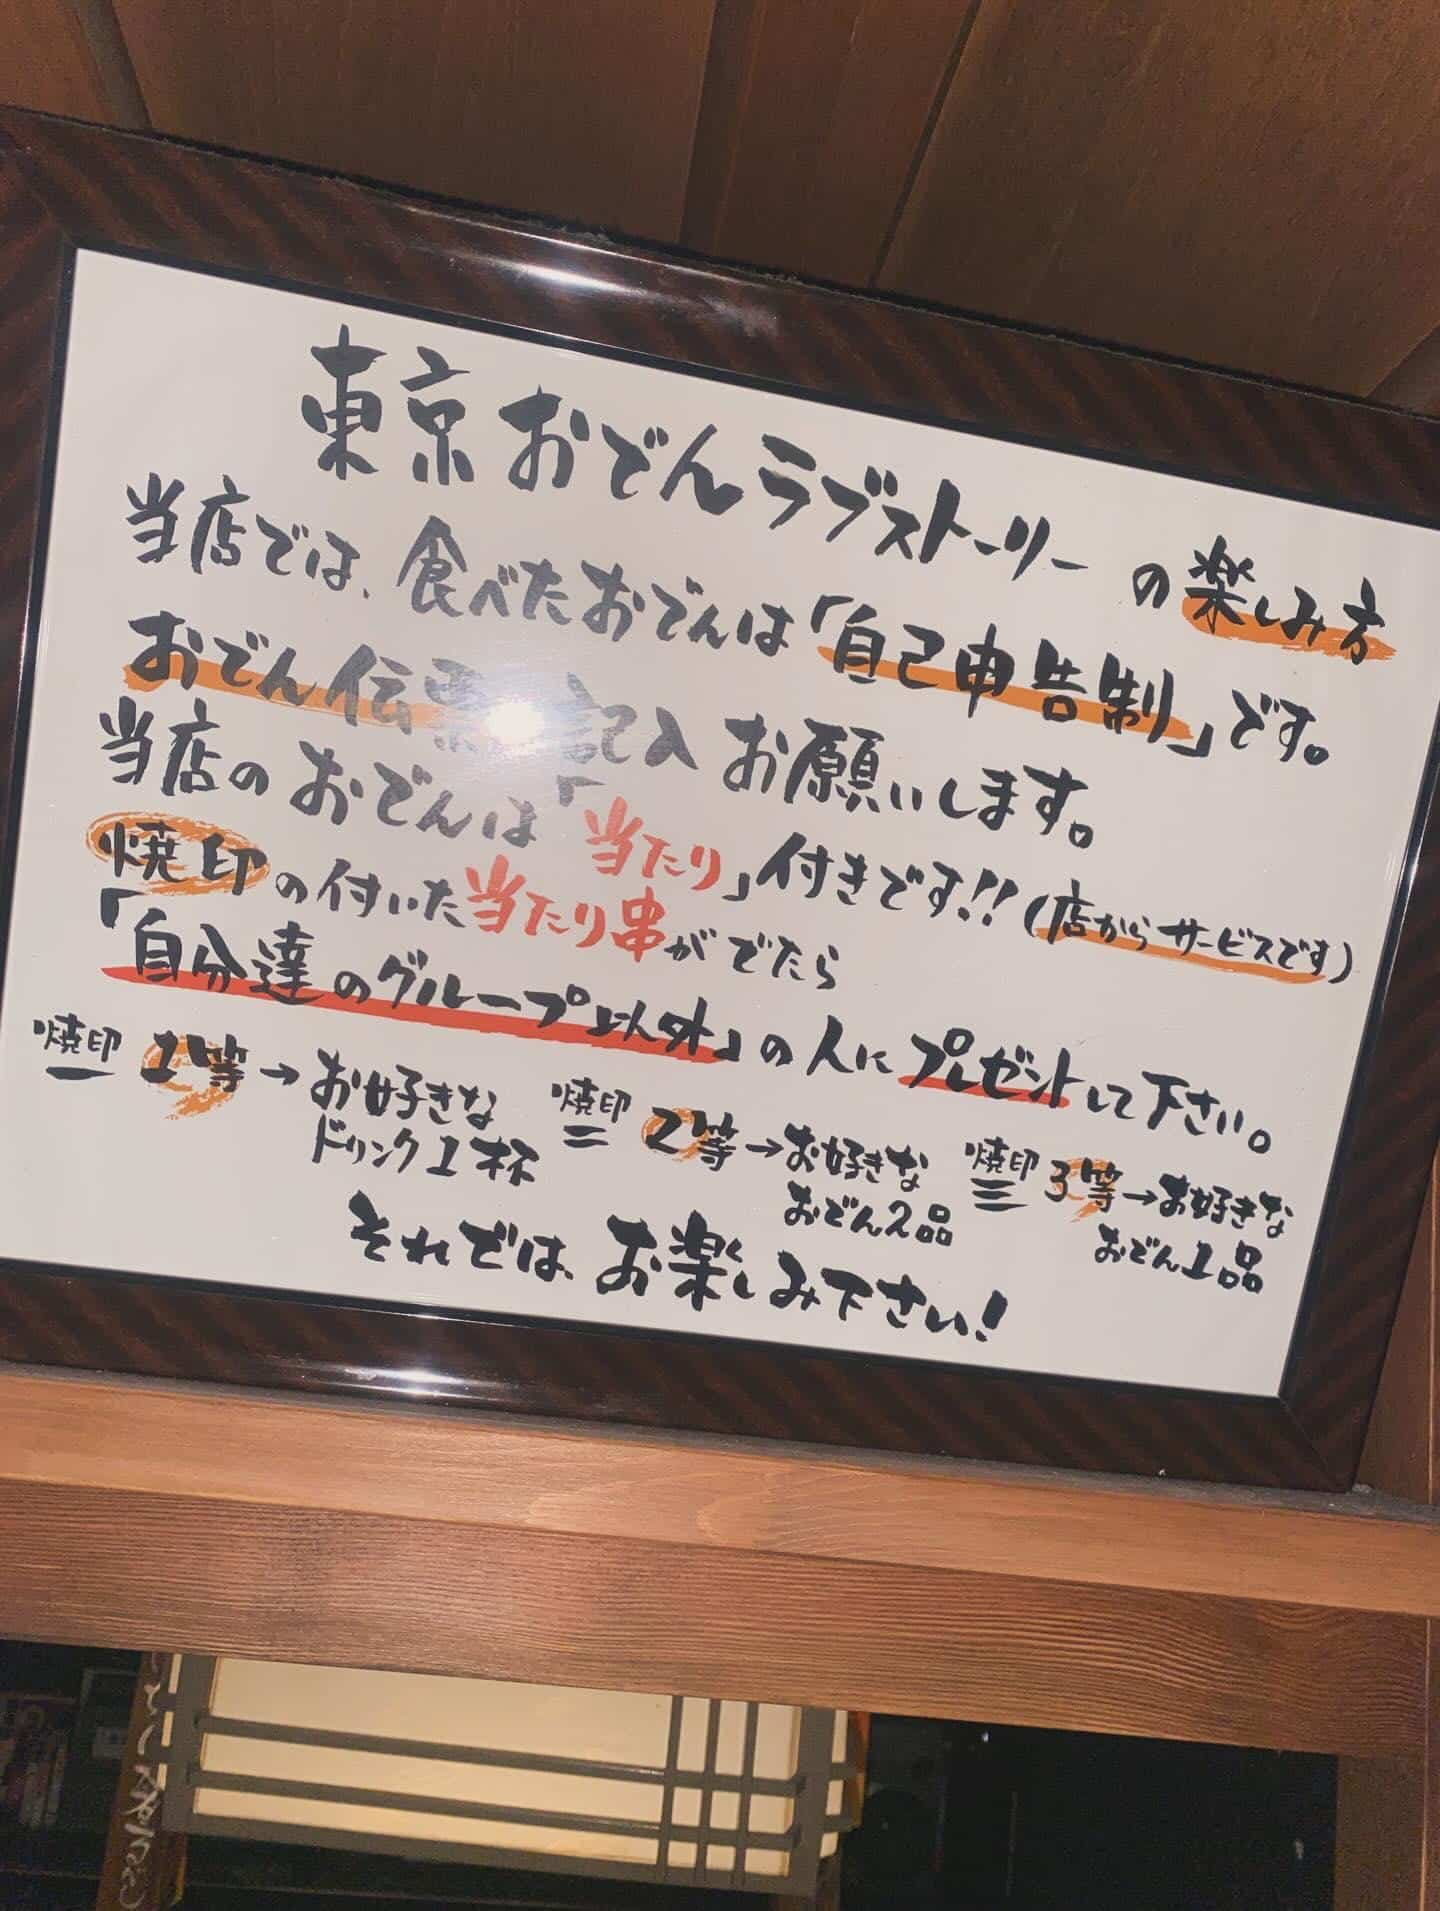 東京おでんラブストーリーの楽しみ方
当店では、食べたおでんは「自己申告制」です。
おでん伝票 記入お願いします。
当店のおでんは「当たり」付きです!!(店からサービスです)
焼印の付いた当たり串がでたら
「自分達のグループ以外」の人にプレゼントして下さい。
焼印 一 1等→お好きなドリンク1杯
焼印 二 2等→お好きなおでん2品
焼印 三 3等→お好きなおでん1品
それでは、お楽しみ下さい!